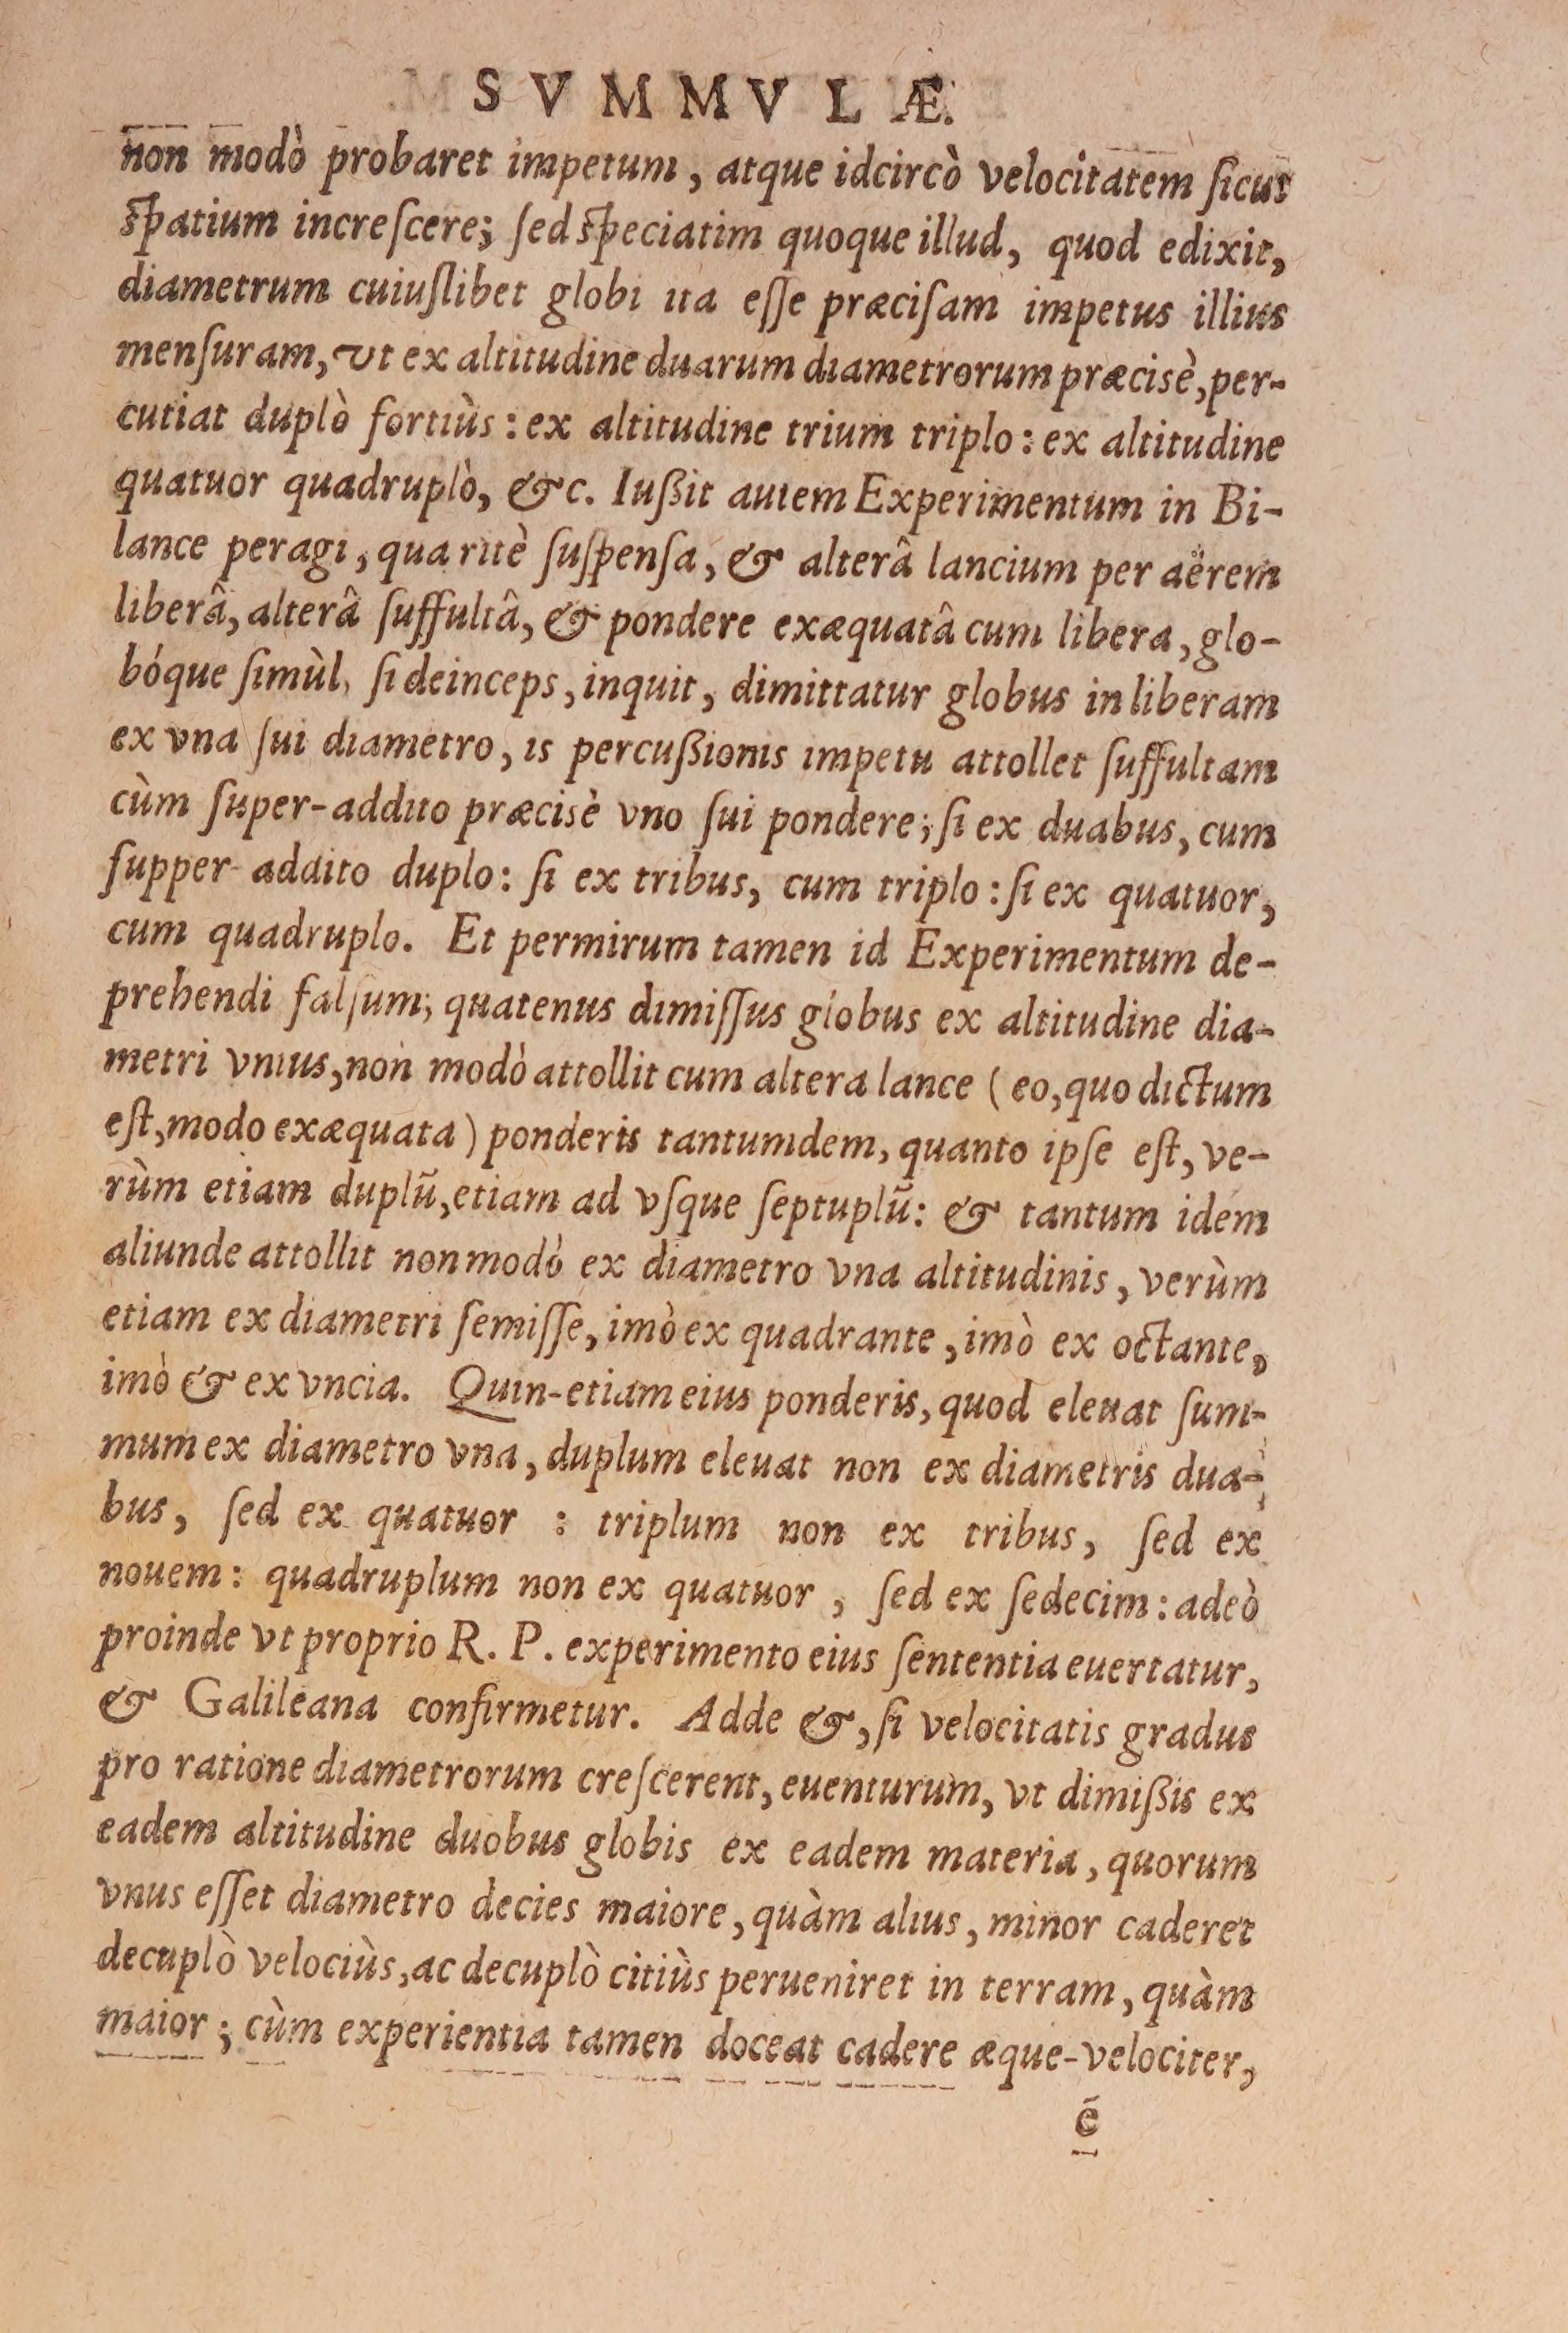 SVMMVLÆ.
non modò probaret impetum, atque idcircò velocitatem ſicut
ſpatium increſcere; ſed ſpeciatim quoque illud, quod edixit,
diametrum cuiuſlibet globi ita eſſe præciſam impetus illius
menſuram, vt ex altitudine duarum diametrorum præcisè, per-
cutiat duplò fortiùs: ex altitudine trium triplo: ex altitudine
quatuor quadruplò, &c. Iußit autem Experimentum in Bi-
lance peragi, qua ritè ſuſpenſa, & alterâ lancium per aërem
liberâ, alterâ ſuffultâ, & pondere exæquatâ cum libera, glo-
bóque ſimùl, ſi deinceps, inquit, dimittatur globus in liberam
ex vna ſui diametro, is percußionis impetu attollet ſuffultam
cùm ſuper-addito præcisè vno ſui pondere; ſi ex duabus, cum
ſupper-addito duplo: ſi ex tribus, cum triplo: ſi ex quatuor,
cum quadruplo. Et permirum tamen id Experimentum de-
prehendi falſum; quatenus dimiſſus globus ex altitudine dia-
metri vnius, non modò attollit cum altera lance (eo, quo dictum
eſt, modo exæquata) ponderis tantumdem, quanto ipſe eſt, ve-
rùm etiam duplũ, etiam ad vſque ſeptuplũ: & tantum idem
aliunde attollit non modò ex diametro vna altitudinis, verùm
etiam ex diametri ſemiſſe, imò ex quadrante, imò ex octante,
imò & ex vncia. Quin-etiam eius ponderis, quod eleuat ſum-
mum ex diametro vna, duplum eleuat non ex diametris dua-
bus, ſed ex quatuor : triplum non ex tribus, ſed ex
nouem: quadruplum non ex quatuor, ſed ex ſedecim: adeò
proinde vt proprio R. P. experimento eius ſententia euertatur,
& Galileana confirmetur. Adde &, ſi velocitatis gradus
pro ratione diametrorum creſcerent, euenturum, vt dimißis ex
eadem altitudine duobus globis ex eadem materia, quorum
vnus eſſet diametro decies maiore, quàm alius, minor caderet
decuplò velociùs, ac decuplò citiùs perueniret in terram, quàm
maior; cùm experientia tamen doceat cadere æque-velociter,
é